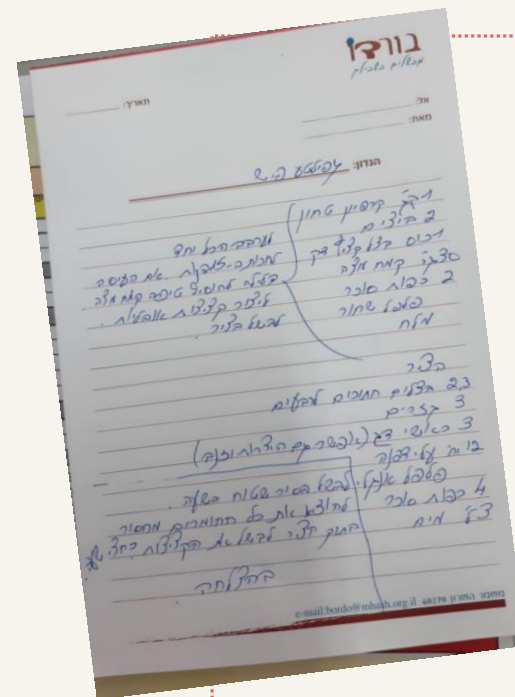 בורדו
מבשלים בשבילך
תאריך:
אל:
מאת:
הנדון: גפילטע פיש
1 ק"ג קרפיון טחון
2 ביצים
1 כוס בצל קצוץ דק
קמח מצה
2 כפות סוכר
פלפל שחור
מלח
לערבב הכל יחד
אם העיסה
בעילה להוסיף טיפה קמח מצה
ליצור קציצות אובליות.
לבשל בציר.
הציר
2,3 בצלים חתוכים לרבעים
3 גזרים
3 ראשי דג (אפשר גם העצמות וזנב)
12 יח' עלי דפנה
פלפל אנגלי
4 כפות סוכר
מים
לבשל הסיר שטוח כשעה.
להוציא את כל החומרים מהסיר
בתוך הציר לבשל את הקציצות כחצי שעה
בהצלחה
e-mail:bordo@mhash.org.il 60270